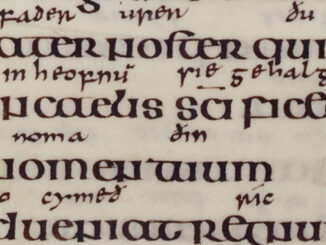 fader uren ðu
ater noster qui
in heofnū sie gehalg
n caelis sc̄i fice
noma ðin
nomen tuum
o cymeð ric
dueniat regnu